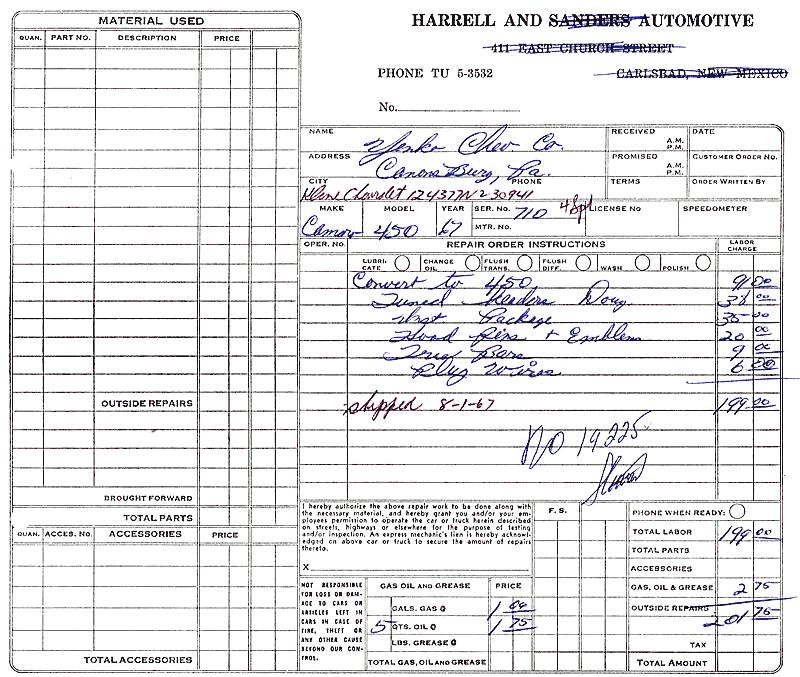 HARRELL AND SANDERS AUTOMOTIVE
411 EAST CHURCH STREET
PHONE TU 5-3532
CARLSBAD, NEW MEXICO
No.
MATERIAL USED
QUAN. PART NO. DESCRIPTION PRICE
OUTSIDE REPAIRS
BROUGHT FORWARD
TOTAL PARTS
QUAN. ACCES. No. ACCESSORIES PRICE
TOTAL ACCESSORIES
NAME Yenko Chev Co.
ADDRESS Canons Burg, Pa.
CITY PHONE
Kline Chevrolet 12437N230941
RECEIVED A.M. P.M. DATE
PROMISED A.M. P.M. CUSTOMER ORDER NO.
TERMS ORDER WRITTEN BY
MAKE MODEL YEAR SER. NO. 710 4 Spd LICENSE NO SPEEDOMETER
Camaro 450 67 MTR. NO.
OPER. NO. REPAIR ORDER INSTRUCTIONS LABOR CHARGE
LUBRI-CATE CHANGE OIL FLUSH TRANS. FLUSH DIFF. WASH POLISH
Convert to 450 91 00
Tuned Headers Doug 38 00
Inst Package 35 00
Hood Pins + Emblems 20 00
Trac Bars 9 00
Plug Wires 6 00
shipped 8-1-67 199 00
NO 14225
I hereby authorize the above repair work to be done along with
the necessary material, and hereby grant you and/or your em-
ployees permission to operate the car or truck herein described
on streets, highways or elsewhere for the purpose of testing
and/or inspection. An express mechanic's lien is hereby acknowl-
edged on above car or truck to secure the amount of repairs
thereto.
X
NOT RESPONSIBLE
FOR LOSS OR DAM-
AGE TO CARS OR
ARTICLES LEFT IN
CARS IN CASE OF
FIRE, THEFT OR
ANY OTHER CAUSE
BEYOND OUR CON-
TROL.
GAS OIL AND GREASE PRICE
GALS. GAS @ 1 00
5 QTS. OIL @ 1 75
LBS. GREASE @
TOTAL GAS, OIL AND GREASE
F. S.
PHONE WHEN READY:
TOTAL LABOR 199 00
TOTAL PARTS
ACCESSORIES
GAS, OIL & GREASE 2 75
OUTSIDE REPAIRS 201 75
TAX
TOTAL AMOUNT